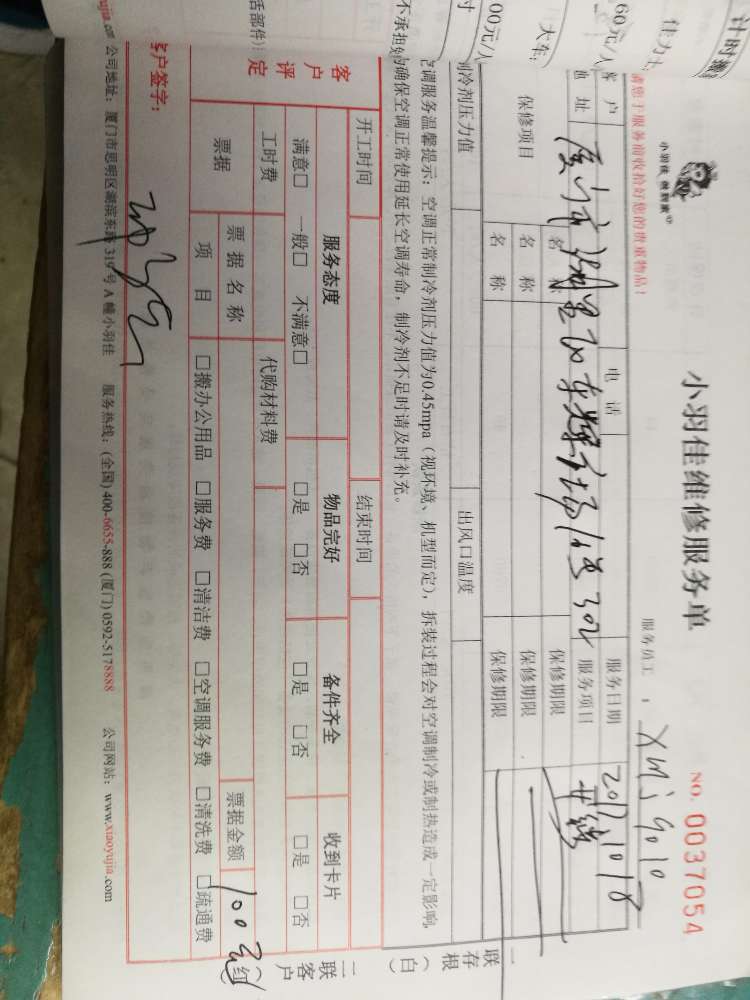 计时搬
佳力
60元/
大车:
00元/
小羽佳 做到家
请您于服务前收拾好您的贵重物品!
小羽佳维修服务单
NO. 0037054
服务员工:
XMJ9010
客户
电话
服务日期
2017.10.18
地址
服务项目
保修项目
名称
保修期限
名称
保修期限
名称
保修期限
制冷剂压力值
出风口温度
空调服务温馨提示:空调正常制冷剂压力值为0.45mpa(视环境、机型而定),拆装过程会对空调制冷或制热造成一定影响,
为确保空调正常使用延长空调寿命,制冷剂不足时请及时补充。
开工时间
结束时间
客户评定
服务态度
物品完好
备件齐全
收到卡片
满意□ 一般□ 不满意□
□是 □否
□是 □否
□是 □否
工时费
代购材料费
票据
票据名称
票据金额
100元
项目
□搬办公用品 □服务费 □清洁费 □空调服务费 □清洗费 □疏通费
客户签字:
公司地址:厦门市思明区湖滨东路319号A幢小羽佳 服务热线:(全国)400-6655-888 (厦门)0592-5178888 公司网站:www.xiaoyujia.com
一联存根(白)
二联客户(红)
不承担
活部件)